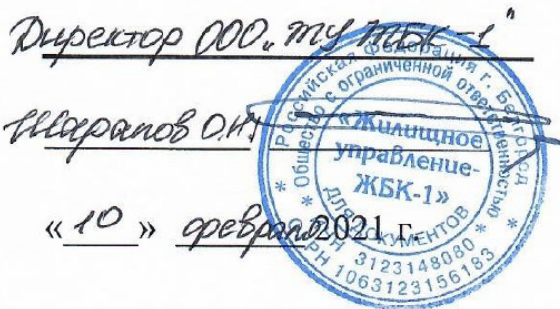 Директор ООО „ЖУ ЖБК-1"
Шарапов О.Н.
« 10 » февраля 2021 г.
* Российская Федерация г. Белгород *
* Общество с ограниченной ответственностью *
«Жилищное
управление-
ЖБК-1»
ДЛЯ ДОКУМЕНТОВ
ИНН 3123148080
ОГРН 1063123156183